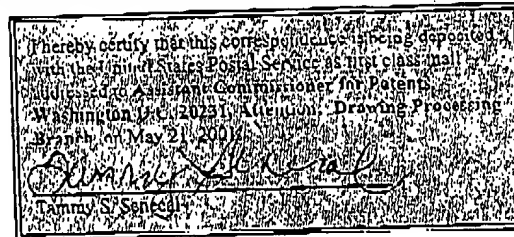 I hereby certify that this correspondence is being deposited
with the United States Postal Service as first class mail
addressed to Assistant Commissioner for Patents
Washington D.C. 20231, Attention: Drawing Processing
Branch on May 21, 2001.
Tammy S. Senecal